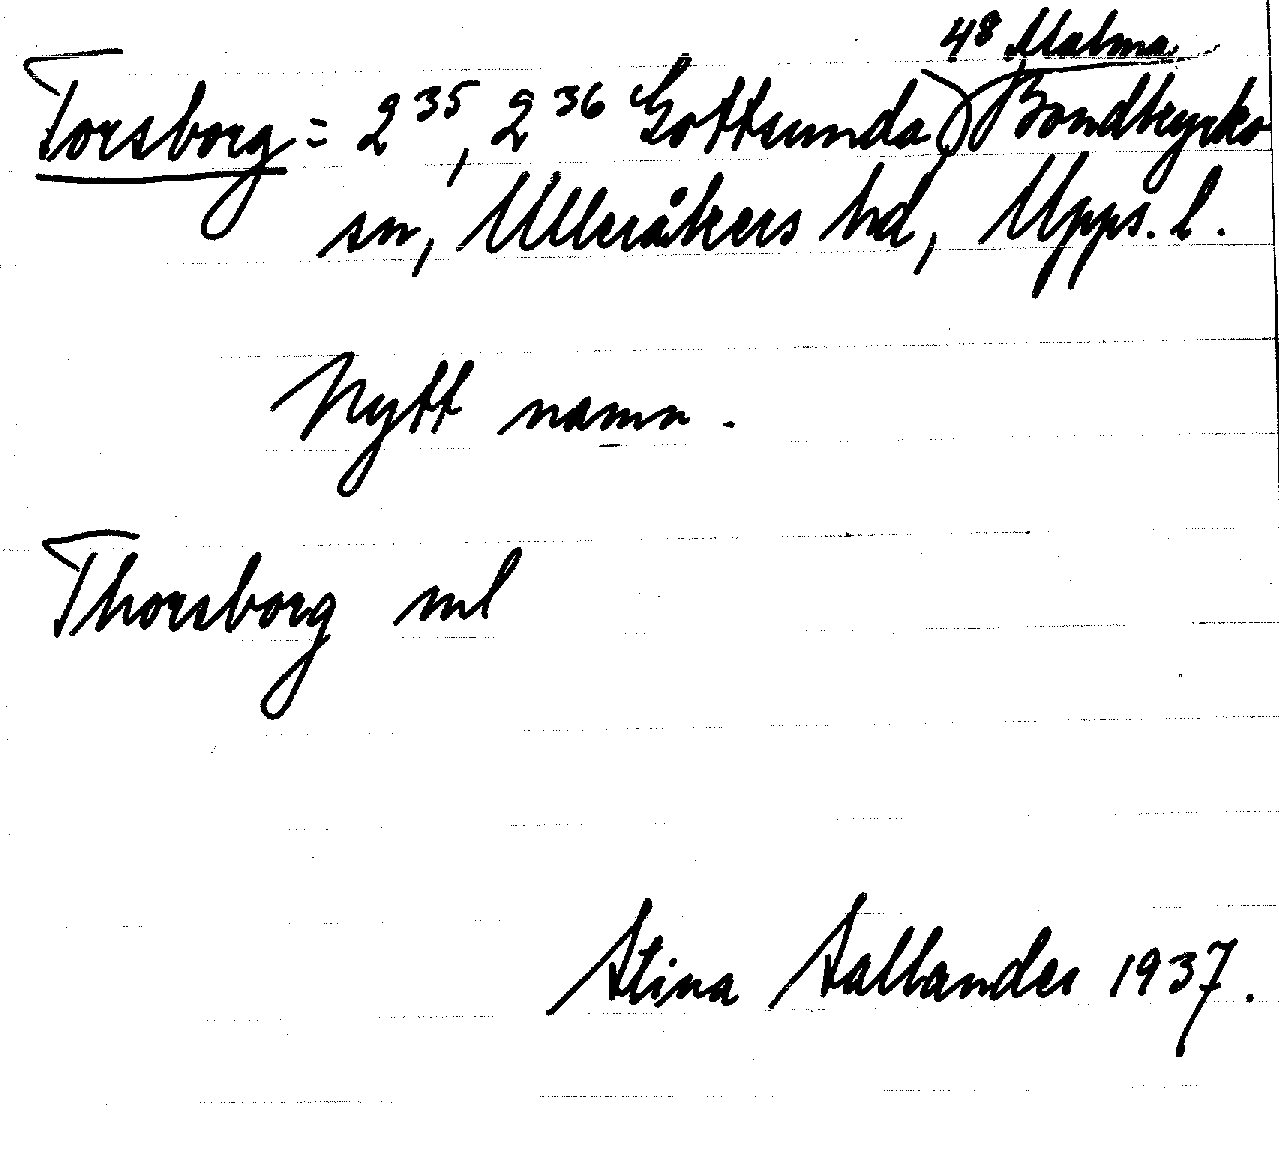 4⁸ Malma
Torsborg = 2³⁵, 2³⁶ Gottsunda, Bondkyrko
sn, Ulleråkers hd, Upps. l.
Nytt namn.
Thorsborg ml
Stina Sallander 1937.